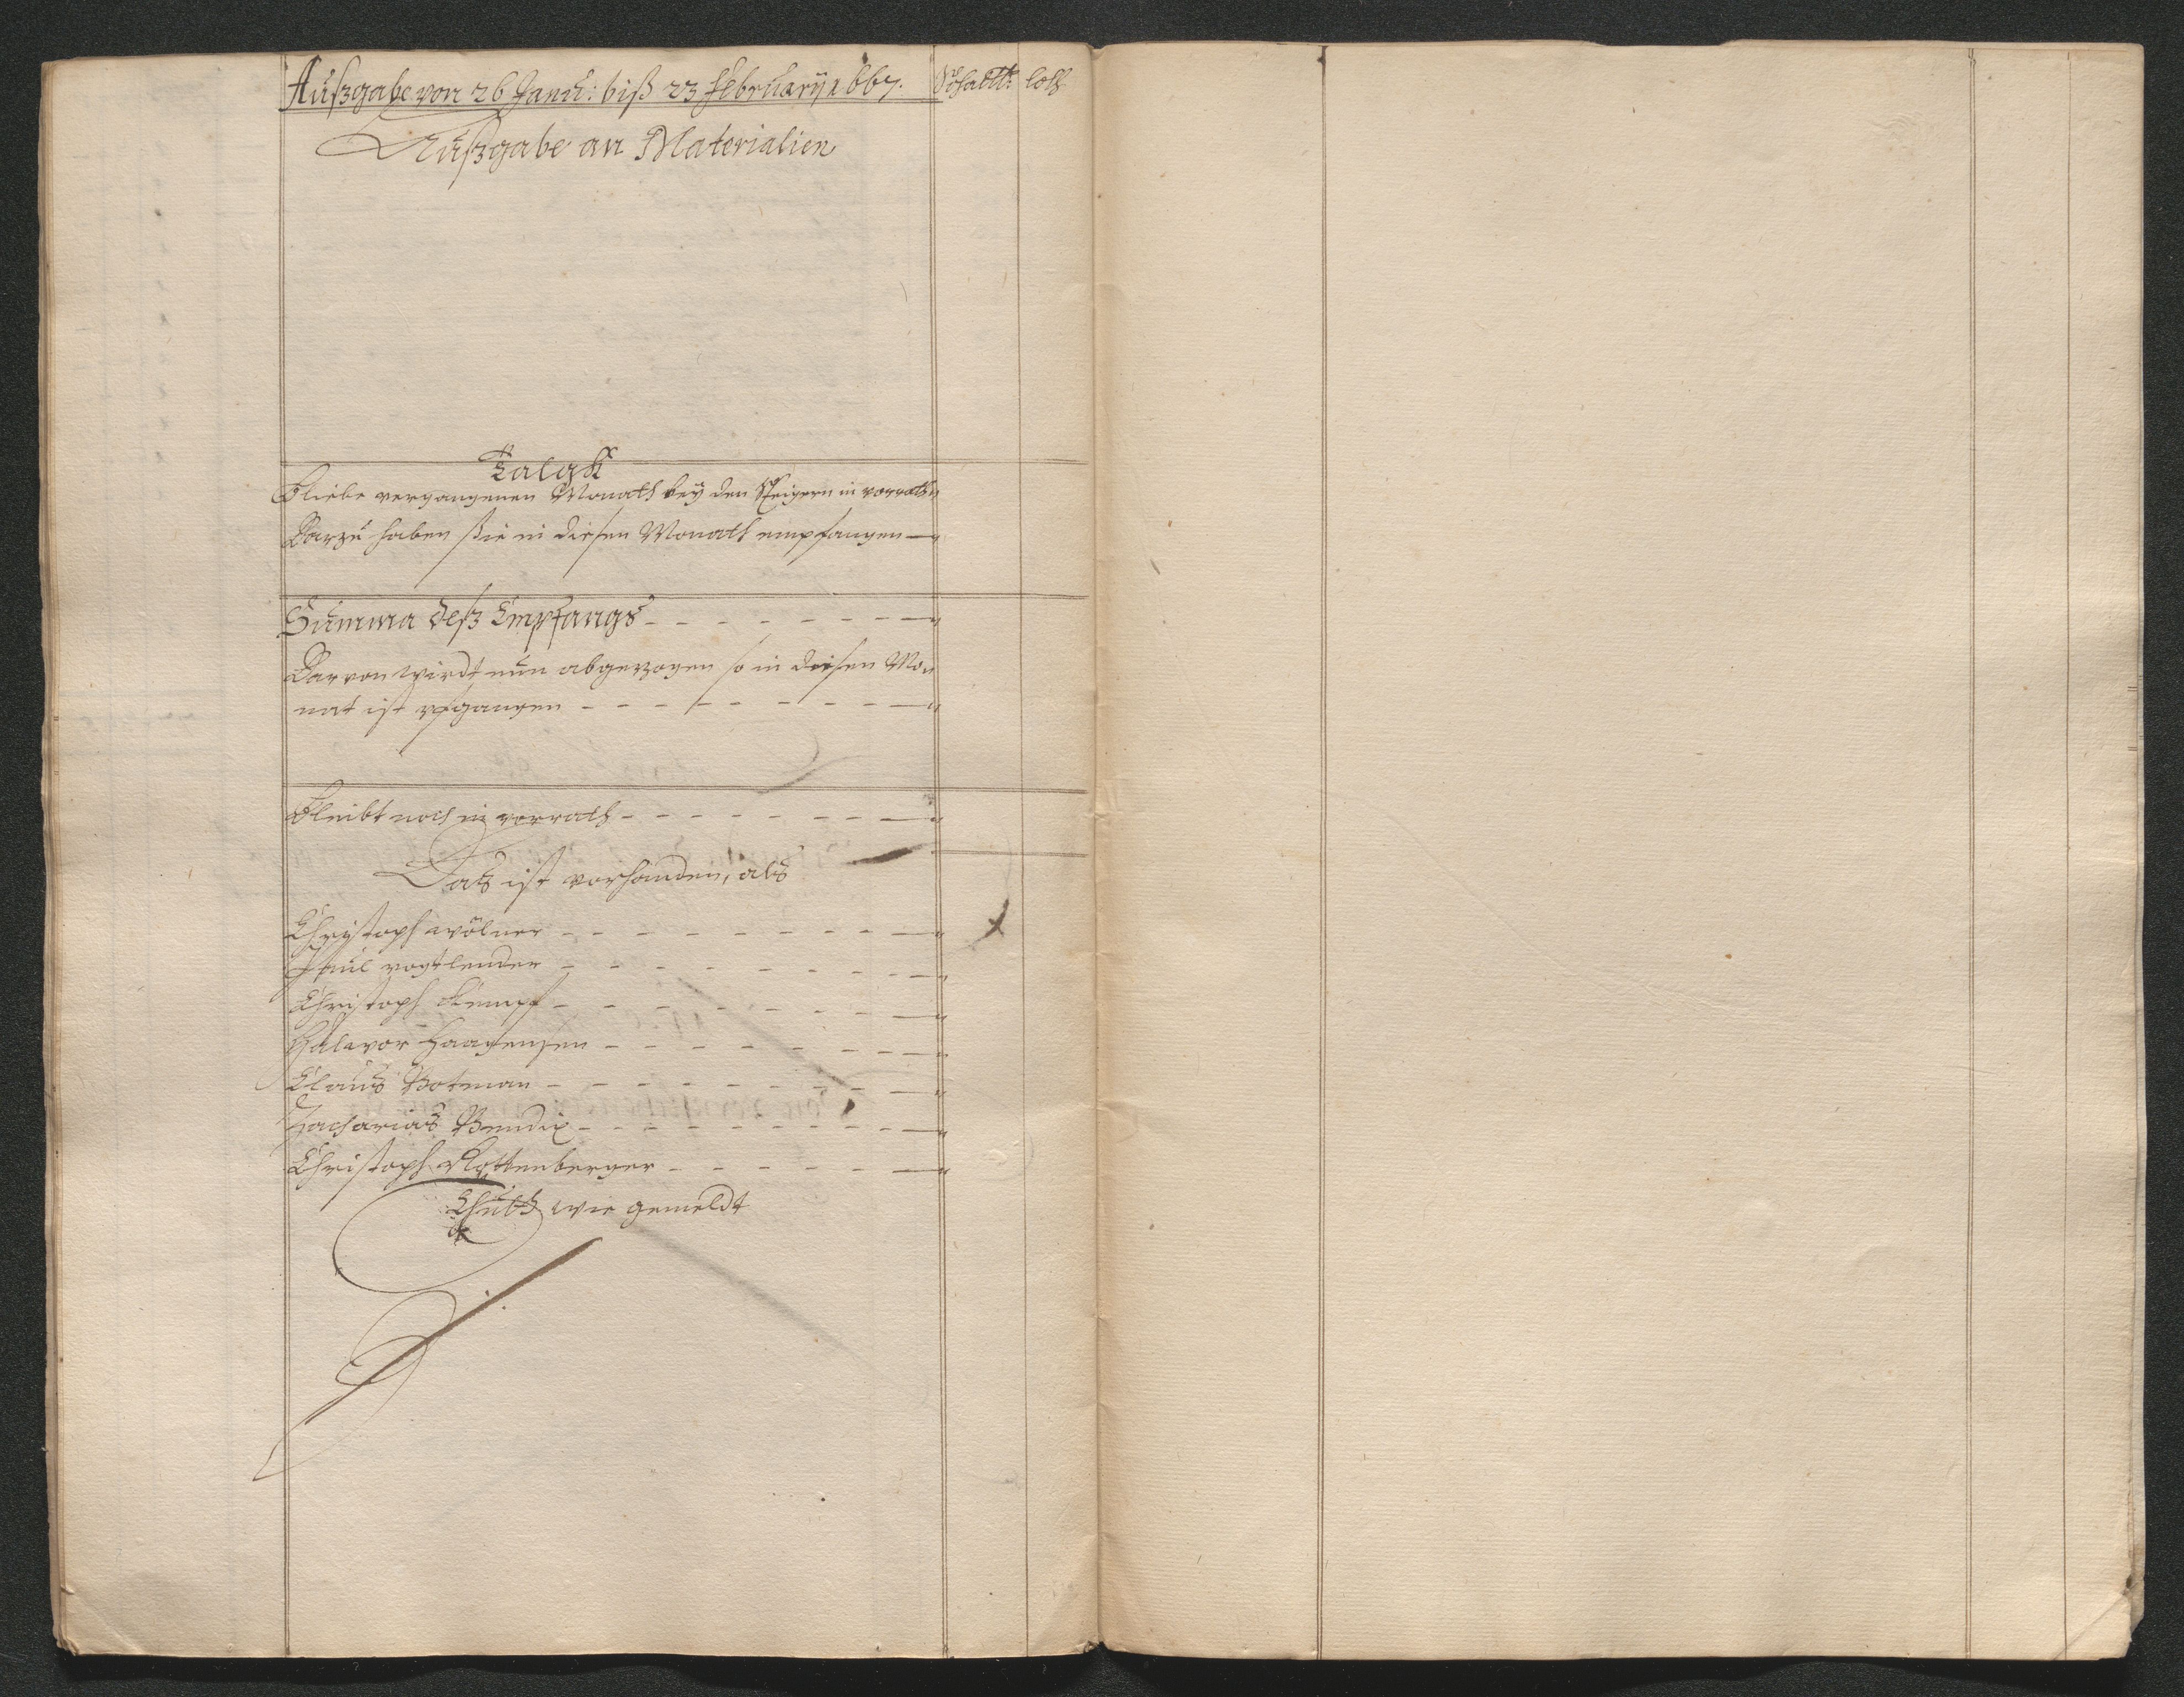 Außgabe von 26 Janu: biß 23 Februarÿ 1667.
Schaltt: loth
Außgabe an Materialien
Talgk
Bliebe vergangenen Monath beÿ den Steigern in vorrath
Darzu haben ßie in diesen Monath empfangen
Summa deß Empfangs
Darvon wirdt nun abgezogen so in diesen Mo
nat ist ufgangen
Bleibt noch in vorrath
Das ist vorhanden, als
Christoph wölner
Paul vogtlender
Christoph Kempf
Halavor Haagensen
Claus Botman
Zacharias Bendix
Christoph Rottenberger
wie gemeldt